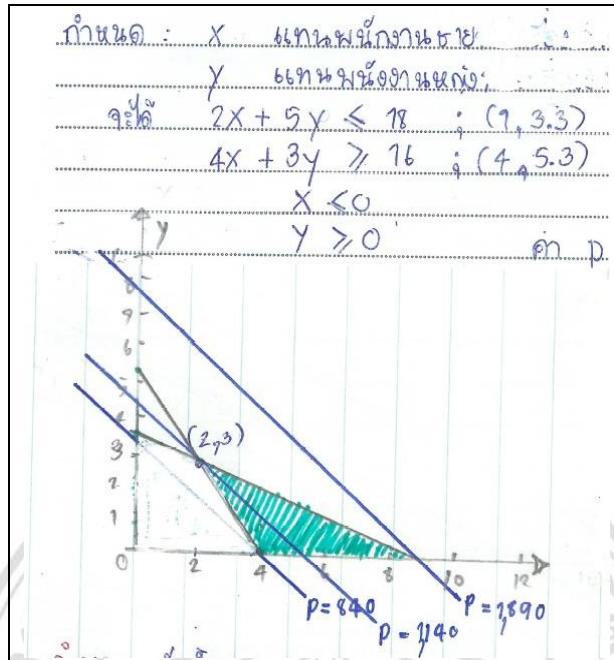 กำหนด : X แทนพนักงานชาย
y แทนพนังงานหญิง
จะได้ 2X + 5y ≤ 18 ; (9, 3.3)
4X + 3y ≥ 16 ; (4, 5.3)
X < 0
y ≥ 0 ค่า p
y
8
7
6
4
3
2
1
(2,3)
0 2 4 6 8 10 12
P = 840
P = 1,140
P = 1,890